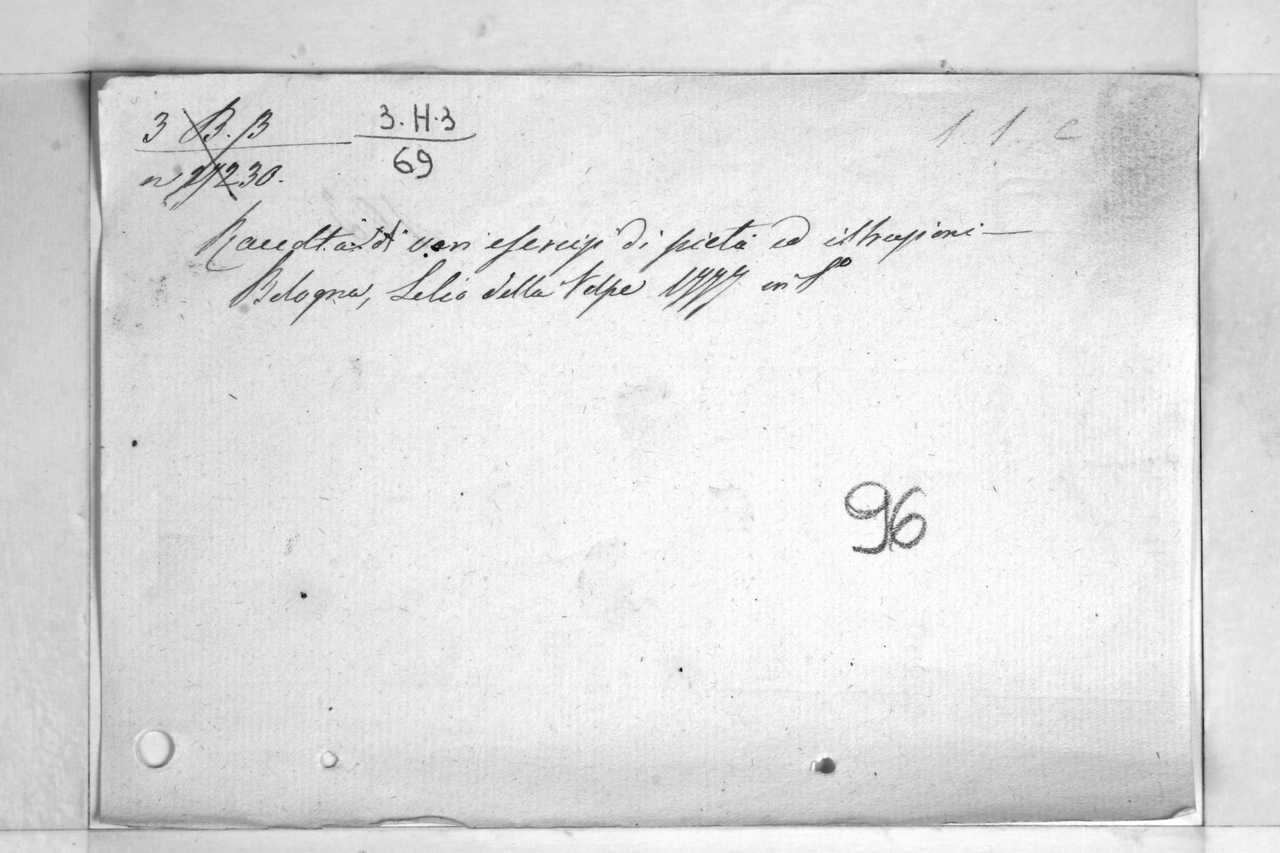 3 B. B
3. H. 3
1 1 c
n° 230.
69
Raccolta di vari esercizj di pietà ed istruzioni —
Bologna, Lelio della Volpe 1777 in 8°
96